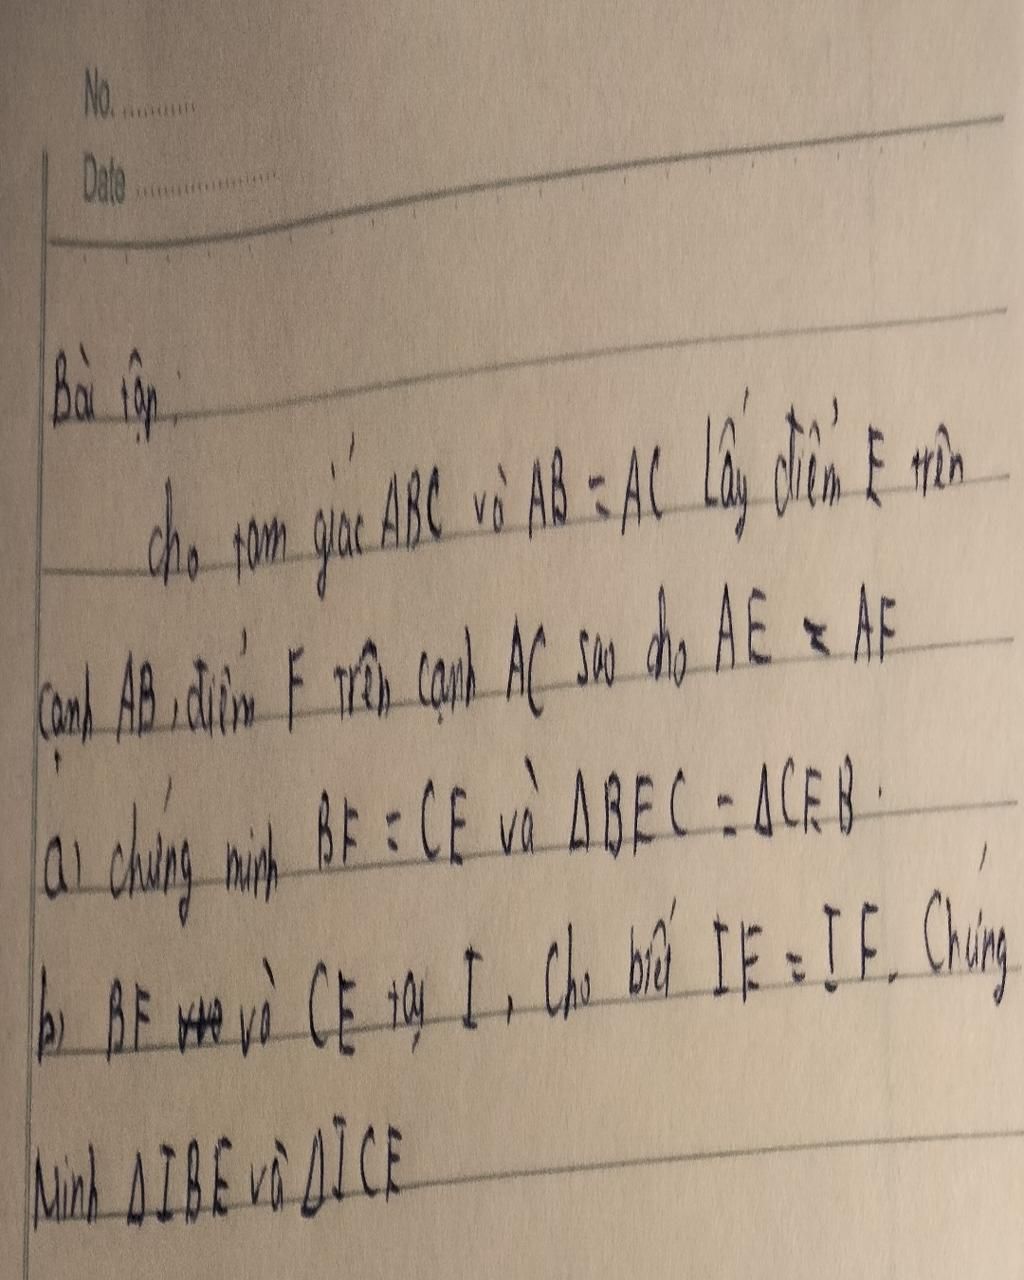 No. ..........
Date ....................
Bài tập:
cho tam giác ABC và AB = AC Lấy điểm E trên
cạnh AB, điểm F trên cạnh AC sao cho AE = AF
a) chứng minh BF = CE và ΔBEC = ΔCFB.
b) BF và CE tại I, Cho biết IE = IF. Chứng
Minh ΔIBE và ΔICF